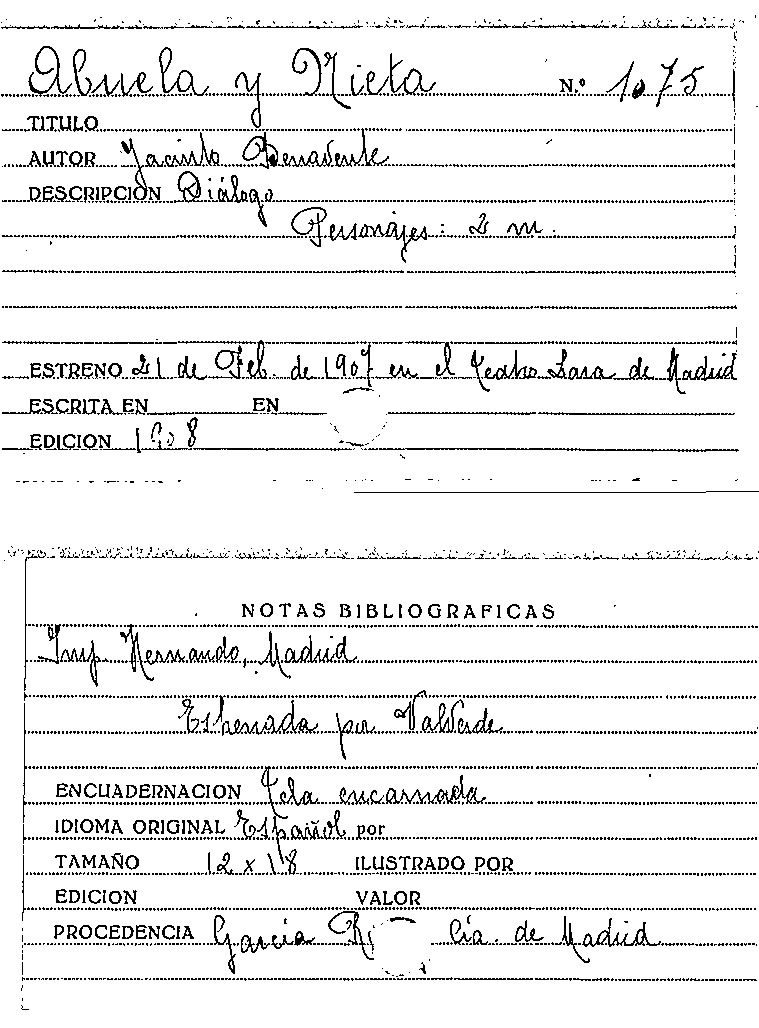 Abuela y Nieta N.º 1075
TITULO
AUTOR Jacinto Benavente
DESCRIPCION Diálogo
Personajes: 2 m.
ESTRENO 21 de Feb. de 1907 en el Teatro Lara de Madrid
ESCRITA EN EN
EDICION 1908
NOTAS BIBLIOGRAFICAS
Imp. Hernando, Madrid
Estrenada por Valverde
ENCUADERNACION Tela encarnada
IDIOMA ORIGINAL Español por
TAMAÑO 12 x 18 ILUSTRADO POR
EDICION VALOR
PROCEDENCIA García Cía. de Madrid